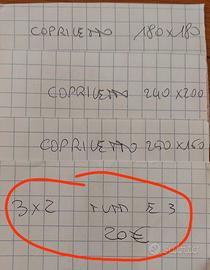 COPRILETTO 180x180
COPRILETTO 240x200
COPRILETTO 250x150
3x2 TUTTI E 3
20€